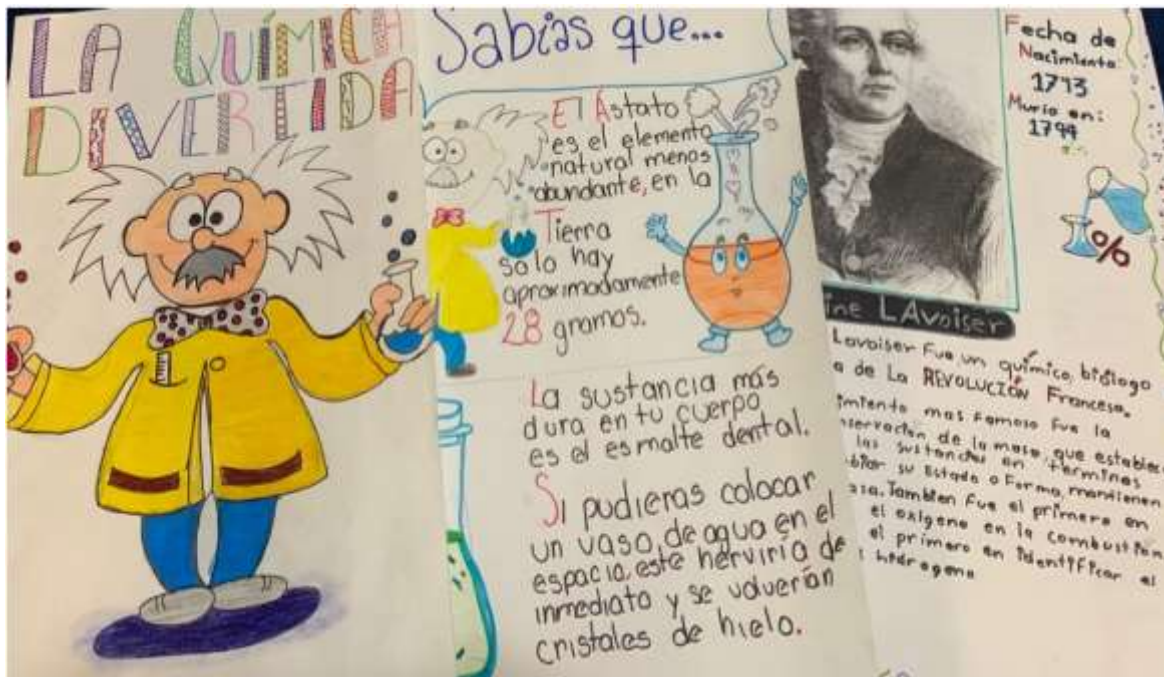 LA QUÍMICA
DIVERTIDA
Sabías que...
El Astato
es el elemento
natural menos
abundante, en la
Tierra
solo hay
aproximadamente
28 gramos.
La sustancia más
dura en tu cuerpo
es el esmalte dental.
Si pudieras colocar
un vaso de agua en el
espacio, este herviría de
inmediato y se volverían
cristales de hielo.
Fecha de
Nacimiento
1743
Murio en:
1794
%
ine LAvoiser
Lavoiser Fue un químico, biólogo
a de La REVOLUCIÓN Francesa.
imiento mas famoso Fue la
nservación de la masa, que establece
las sustancias en terminos
biar su Estado o Forma, mantienen
asa. Tambien Fue el primero en
el oxigeno en la combustión
el primero en identificar el
hidrogeno